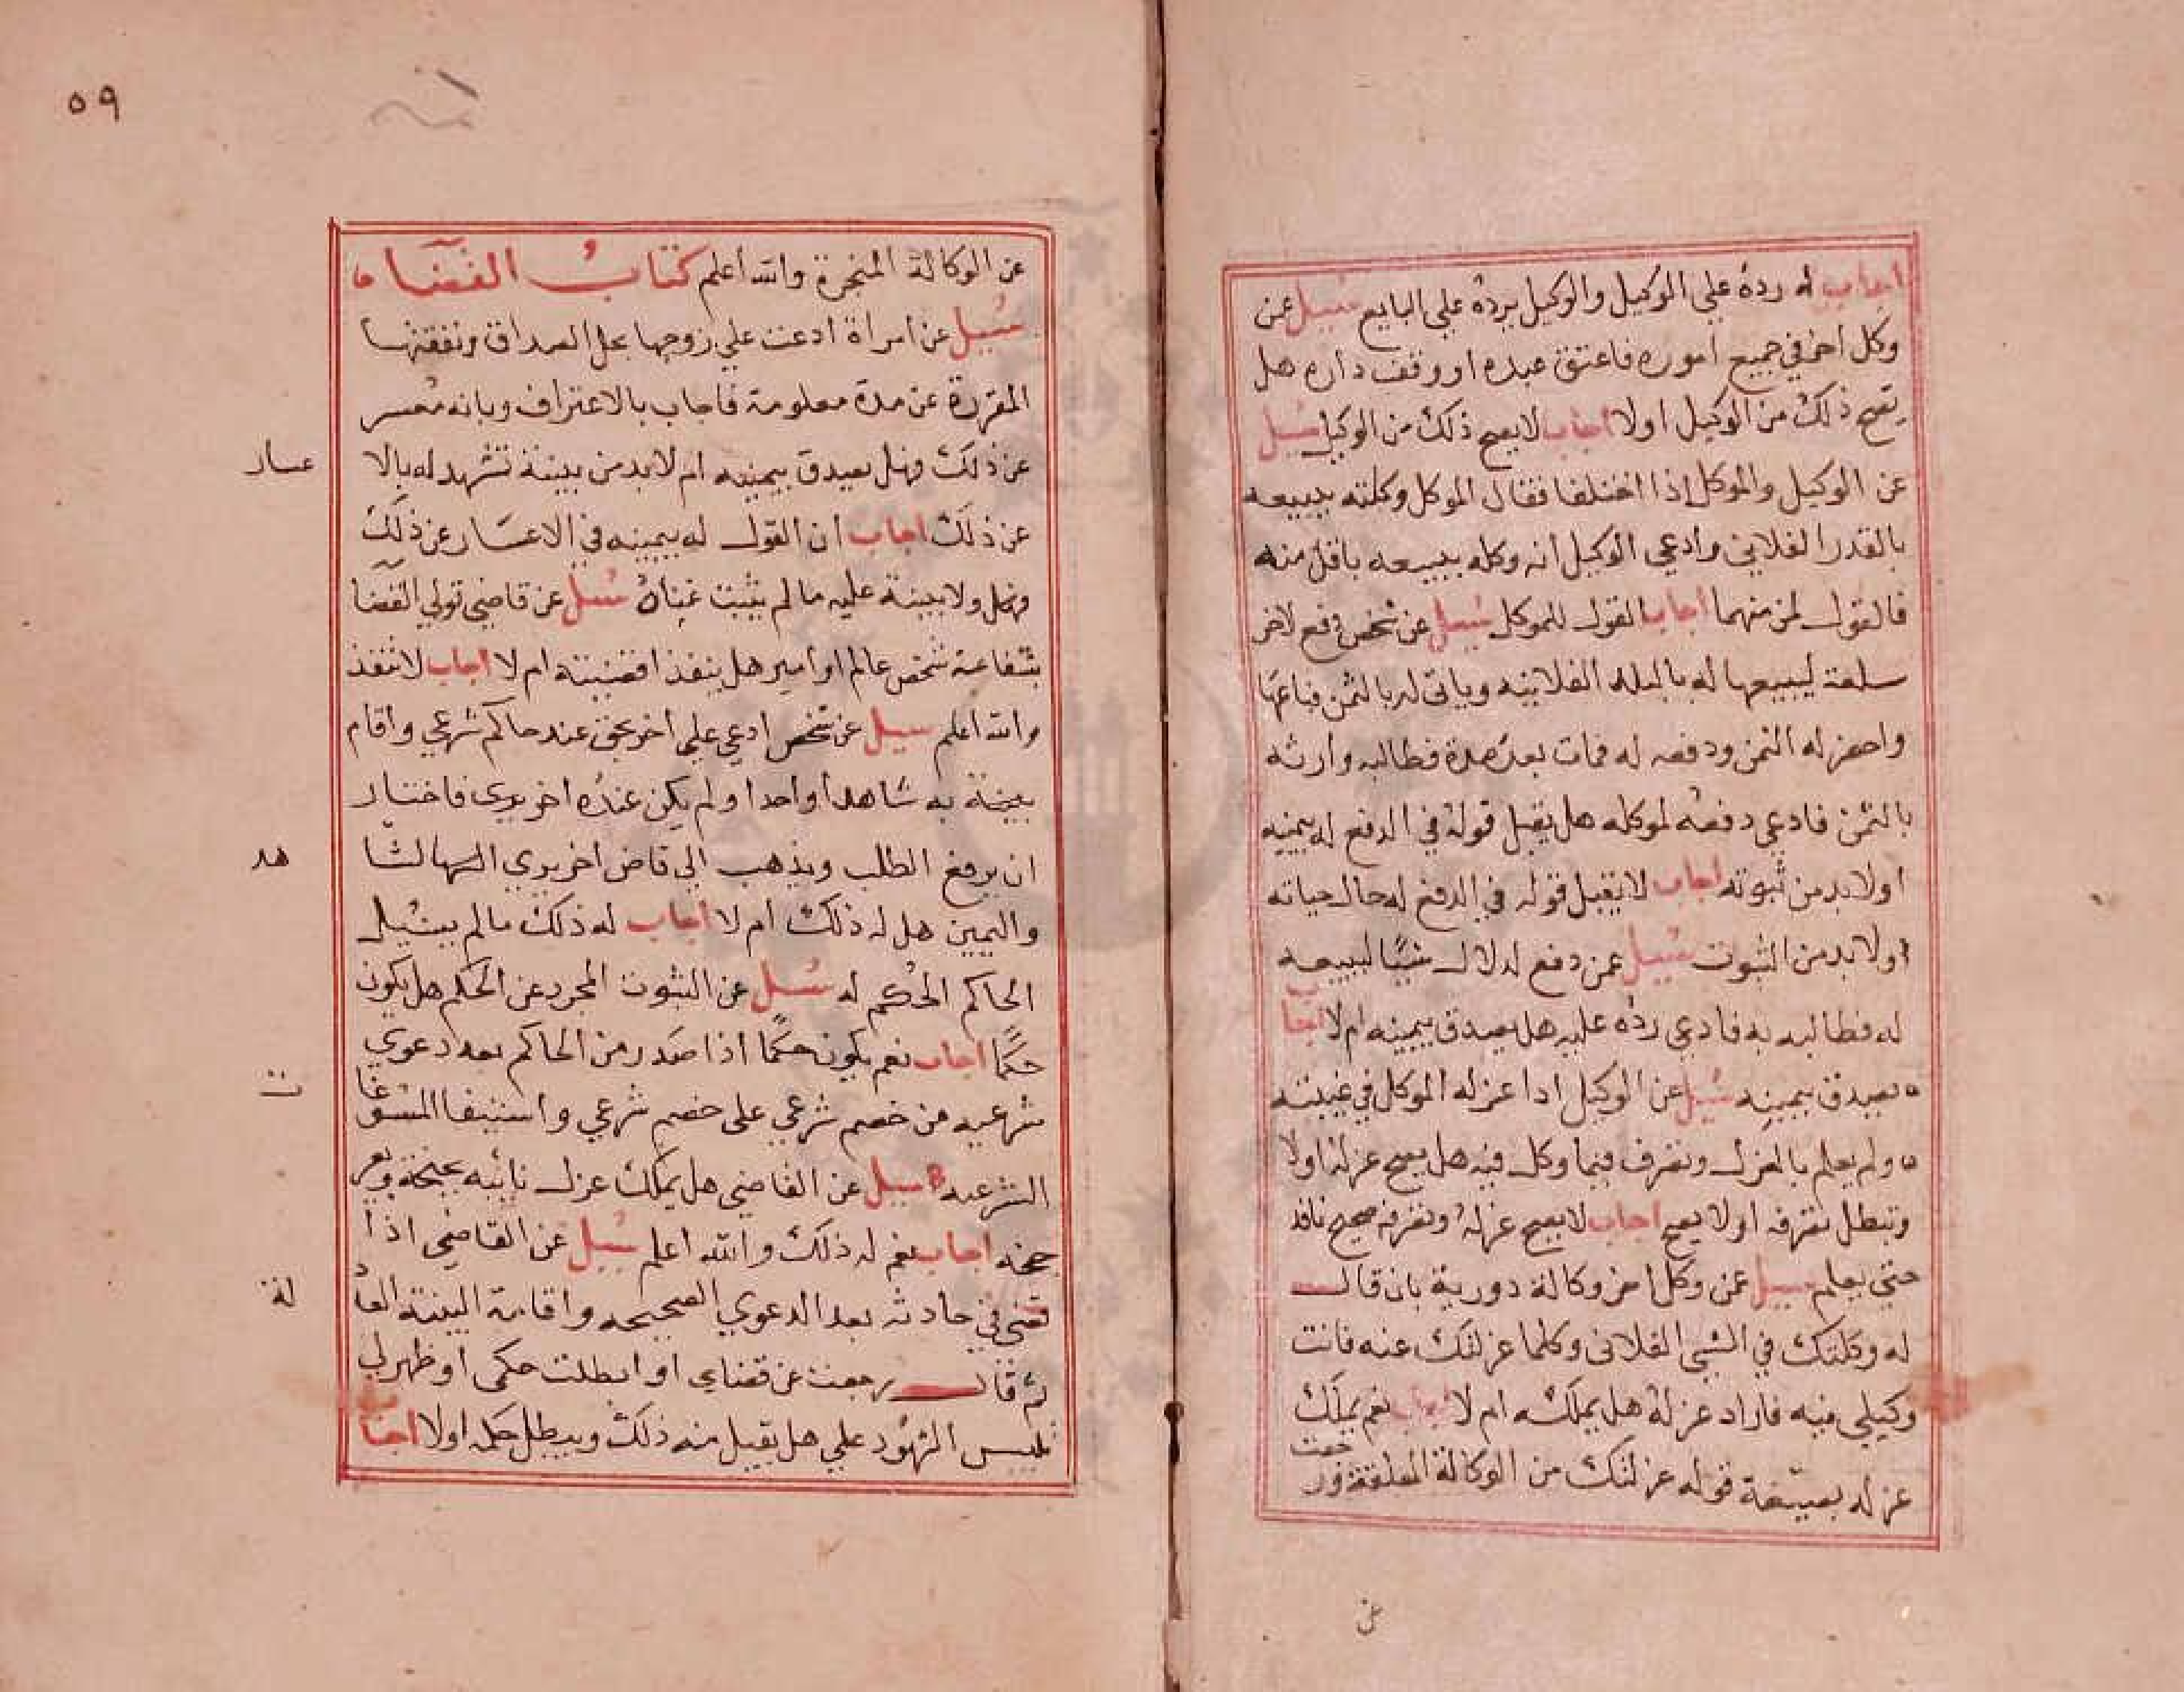 اجاب له رده علي الموكيل والوكيل يرده علي البايع سيل عمن
وكل اخر في جميع اموره فاعتق عبده او وقف داره هل
يصح ذلك من الوكيل اولا اجاب لايصح ذلك من الوكيل سيل
عن الوكيل والموكل اذا اختلفا فقال الموكل وكلته ببيعه
بالقدر الفلاني وادعي الوكيل انه وكله ببيعه باقل منه
فالقول لمن منهما اجاب القول للموكل سيل عن شخص دفع لاخر
سلعة ليبيعها له بالبلد الفلانيه وياتي له بالثمن فباعها
واحضر له الثمن ودفعه له فمات بعد مدة فطالبه وارثه
بالثمن فادعي دفعه لموكله هل يقبل قوله في الدفع له بيمينه
اولابد من ثبوته اجاب لايقبل قوله في الدفع له حال حياته
اولابد من الثبوت سيل عمن دفع لدلال شيًا ليبيعه
له فطالبه به فادعي رده عليه هل يصدق بيمينه ام لا اجاب
يصدق بيمينه سيل عن الوكيل اذا عزله الموكل في غيبته
ولم يعلم بالعزل وتصرف فيما وكل فيه هل يصح عزله اولا
وتبطل تصرفه اولا يصح اجاب لايصح عزله وتصرفه صحيح نافذ
حتي يعلم سيل عمن وكل اخر وكالة دورية بان قال
له وكلتك في الشي الفلاني وكلما عزلتك عنه فانت
وكيلي فيه فاراد عزله هل يملكه ام لا اجاب نعم يملك
عزله بصيغة قوله عزلتك من الوكالة المعلقة ورجعت
عن
٥٩
عن الوكالة المنجزة والله أعلم كتاب القضاء
سيل عن امراة ادعت علي زوجها بحال الصداق ونفقتها
المقررة عن مدة معلومة فاجاب بالاعتراف وبانه معسر
عن ذلك وهل يصدق بيمينه ام لابد من بينة تشهد له بالا عسار
عن ذلك اجاب ان القول له بيمينه في الاعسار عن ذلك
وهل ولا بينة عليه مالم يثبت غناه سيل عن قاضي تولي القضا
بشفاعة شخص عالم او امير هل ينفذ اقضيته ام لا اجاب لا تنفذ
والله اعلم سيل عن شخص ادعي علي اخر بحق عند حاكم شرعي واقام
بينة به شاهدا واحدا ولم يكن عنده اخر يري فاختار
ان يرفع الطلب ويذهب الي قاض اخر يري الشا هد
واليمين هل له ذلك ام لا اجاب له ذلك مالم يسيل
الحاكم الحكم له سيل عن الثبوت المجرد عن الحكم هل يكون
حكما اجاب نعم يكون حكما اذا صدر من الحاكم بعد دعوي
شرعيه من خصم شرعي على خصم شرعي واستيفا المسوغا ت
الشرعيه سيل عن القاضي هل يملك عزل نايبه بجنحة وبغير
جنحه اجاب نعم له ذلك والله اعلم سيل عن القاضي اذا
قضي في حادثه بعد الدعوي الصحيحه واقامة البينة العاد لة
ثم قال رجعت عن قضاي او ابطلت حكمي او ظهر لي
تلبيس الشهود علي هل يقبل منه ذلك ويبطل حكمه اولا اجا